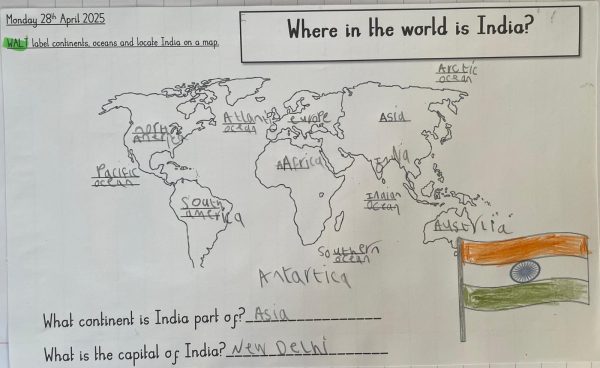 Monday 28th April 2025
Where in the world is India?
WALT label continents, oceans and locate India on a map.
Arctic
ocean
Atlantic
ocean
europe
Asia
north
America
Africa
Pacific
ocean
Indian
ocean
South
america
Southern
ocean
Antartica
What continent is India part of? Asia
What is the capital of India? New Delhi